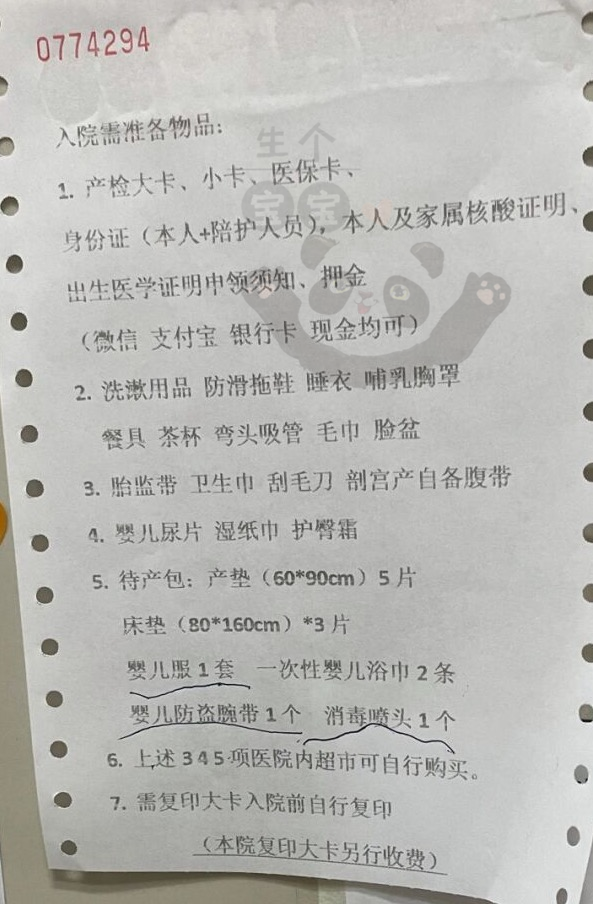 0774294
入院需准备物品:
生个
宝宝
1. 产检大卡、小卡、医保卡、
身份证（本人+陪护人员），本人及家属核酸证明、
出生医学证明申领须知、押金
（微信 支付宝 银行卡 现金均可）
2. 洗漱用品 防滑拖鞋 睡衣 哺乳胸罩
餐具 茶杯 弯头吸管 毛巾 脸盆
3. 胎监带 卫生巾 刮毛刀 剖宫产自备腹带
4. 婴儿尿片 湿纸巾 护臀霜
5. 待产包：产垫（60*90cm）5片
床垫（80*160cm）*3片
婴儿服1套 一次性婴儿浴巾2条
婴儿防盗腕带1个 消毒喷头1个
6. 上述345项医院内超市可自行购买。
7. 需复印大卡入院前自行复印
（本院复印大卡另行收费）